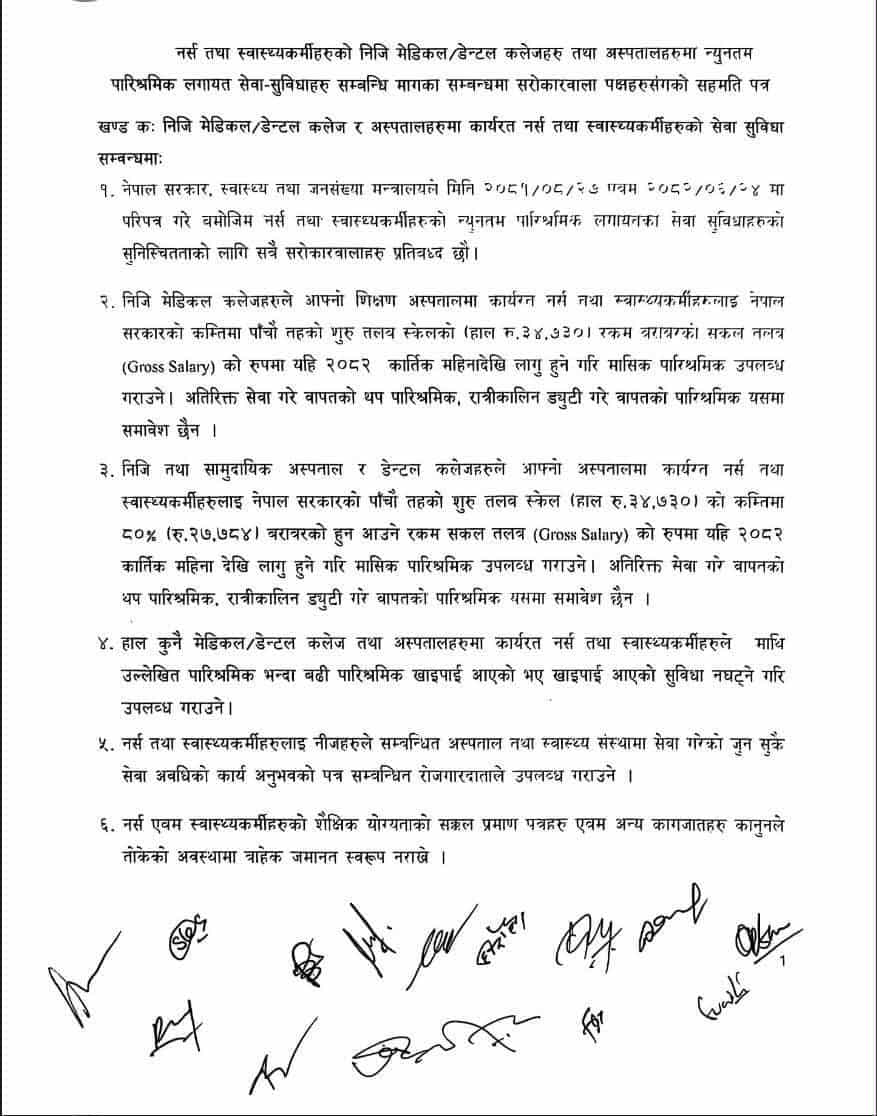 नर्स तथा स्वास्थ्यकर्मीहरुको निजि मेडिकल/डेन्टल कलेजहरु तथा अस्पतालहरुमा न्युनतम
पारिश्रमिक लगायत सेवा-सुविधाहरु सम्बन्धि मागका सम्बन्धमा सरोकारवाला पक्षहरुसंगको सहमति पत्र
खण्ड कः निजि मेडिकल/डेन्टल कलेज र अस्पतालहरुमा कार्यरत नर्स तथा स्वास्थ्यकर्मीहरुको सेवा सुविधा
सम्बन्धमाः
१. नेपाल सरकार, स्वास्थ्य तथा जनसंख्या मन्त्रालयले मिति २०८१/०८/२७ एवम २०८२/०६/२४ मा
परिपत्र गरे बमोजिम नर्स तथा स्वास्थ्यकर्मीहरुको न्युनतम पारिश्रमिक लगायतका सेवा सुविधाहरुको
सुनिस्चितताको लागि सबै सरोकारवालाहरु प्रतिवध्द छौ।
२. निजि मेडिकल कलेजहरुले आफ्नो शिक्षण अस्पतालमा कार्यरत नर्स तथा स्वास्थ्यकर्मीहरुलाइ नेपाल
सरकारको कम्तिमा पाँचौ तहको शुरु तलव स्केलको (हाल रु.३४,७३०) रकम बराबरको सकल तलब
(Gross Salary) को रुपमा यहि २०८२ कार्तिक महिनादेखि लागु हुने गरि मासिक पारिश्रमिक उपलब्ध
गराउने। अतिरिक्त सेवा गरे वापतको थप पारिश्रमिक, रात्रीकालिन ड्युटी गरे वापतको पारिश्रमिक यसमा
समावेश छैन ।
३. निजि तथा सामुदायिक अस्पताल र डेन्टल कलेजहरुले आफ्नो अस्पतालमा कार्यरत नर्स तथा
स्वास्थ्यकर्मीहरुलाइ नेपाल सरकारको पाँचौ तहको शुरु तलव स्केल (हाल रु.३४,७३०) को कम्तिमा
८०% (रु.२७,७८४) बराबरको हुन आउने रकम सकल तलब (Gross Salary) को रुपमा यहि २०८२
कार्तिक महिना देखि लागु हुने गरि मासिक पारिश्रमिक उपलब्ध गराउने। अतिरिक्त सेवा गरे वापतको
थप पारिश्रमिक, रात्रीकालिन ड्युटी गरे वापतको पारिश्रमिक यसमा समावेश छैन ।
४. हाल कुनै मेडिकल/डेन्टल कलेज तथा अस्पतालहरुमा कार्यरत नर्स तथा स्वास्थ्यकर्मीहरुले माथि
उल्लेखित पारिश्रमिक भन्दा बढी पारिश्रमिक खाइपाई आएको भए खाइपाई आएको सुविधा नघट्ने गरि
उपलब्ध गराउने।
५. नर्स तथा स्वास्थ्यकर्मीहरुलाइ नीजहरुले सम्बन्धित अस्पताल तथा स्वास्थ्य संस्थामा सेवा गरेको जुन सुकै
सेवा अवधिको कार्य अनुभवको पत्र सम्बन्धित रोजगारदाताले उपलब्ध गराउने ।
६. नर्स एवम स्वास्थ्यकर्मीहरुको शैक्षिक योग्यताको सक्कल प्रमाण पत्रहरु एवम अन्य कागजातहरु कानुनले
तोकेको अवस्थामा बाहेक जमानत स्वरूप नराखे ।
1